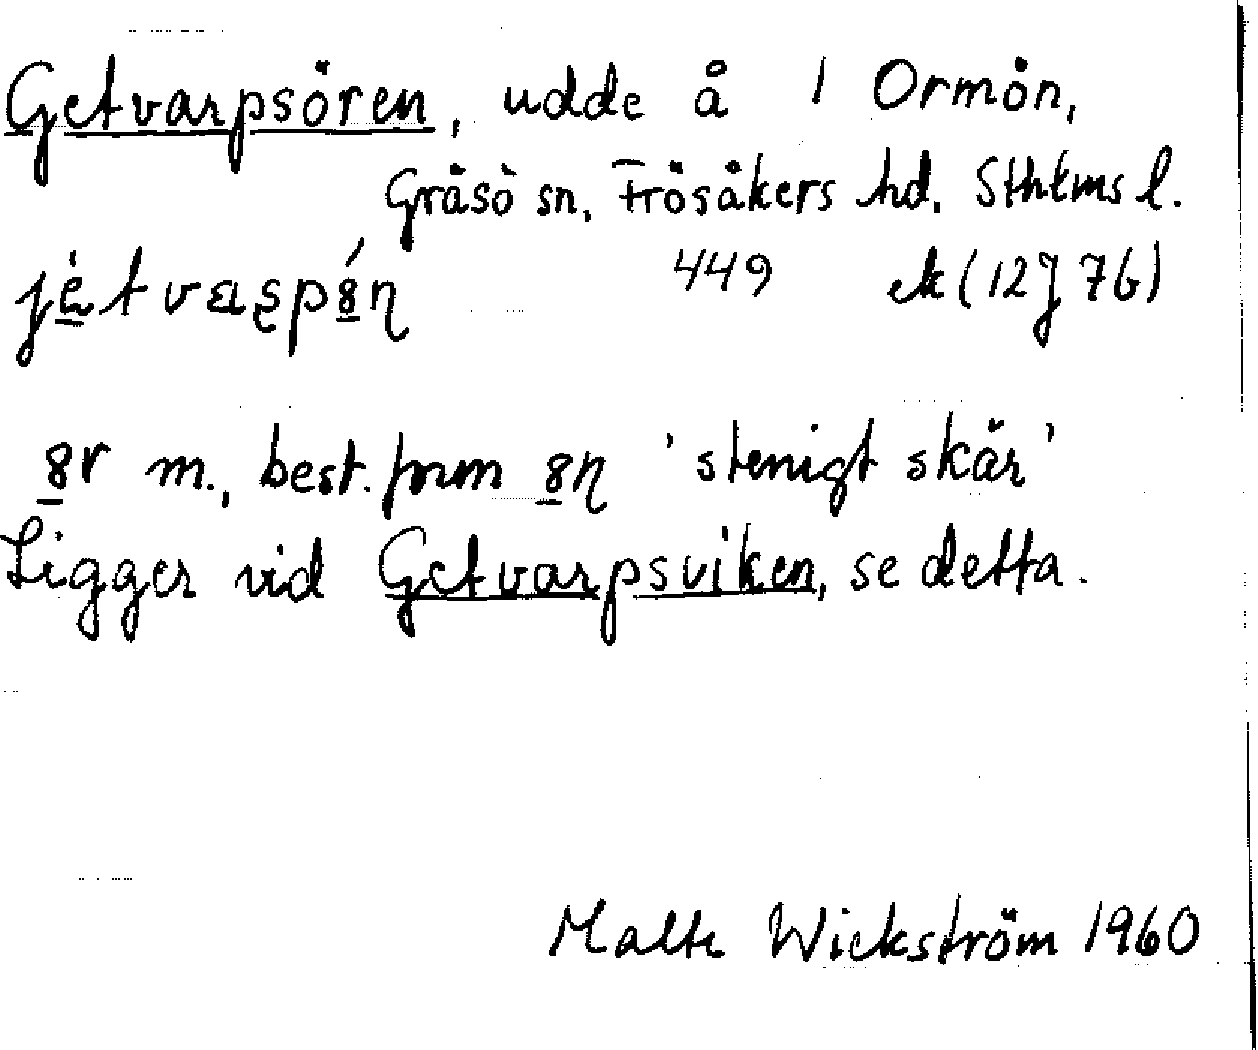 Getvarpsören, udde å 1 Ormön,
Gräsö sn, Frösåkers hd. Sthlms l.
449 ek (12J 7b)
m., best. form 'stenigt skär'
Ligger vid Getvarpsviken, se detta.
Malte Wickström 1960